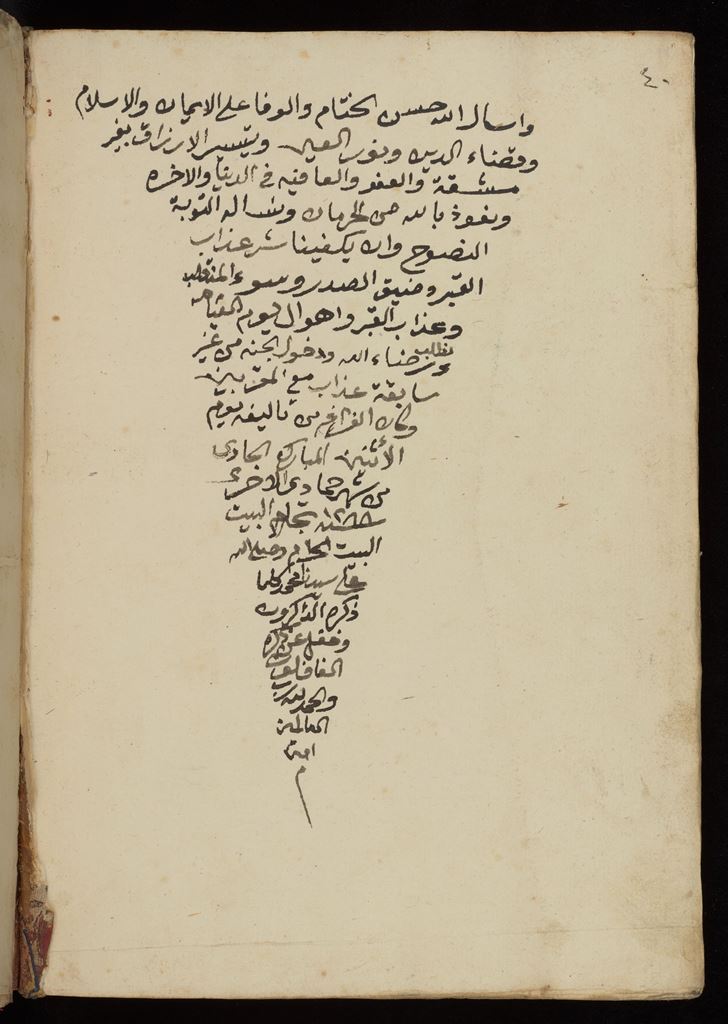 ٤٠
واسال الله حسن الختام والوفا على الايمان والاسلام
وقضاء الدين ونور العين وتيسير الارزاق بغير
مشقة والعفو والعافيه في الدنيا والاخره
ونعوذ بالله من الحرمان ونساله التوبة
النصوح وان يكفينا شر عذاب
القبر وضيق الصدر وسوء المنقلب
وعذاب القبر واهوال يوم القيامه
ونطلب رضاء الله ودخول الجنه من غير
سابقة عذاب مع المقربين
وكان الفراغ من تاليفه يوم
الأثنين المبارك الحادى
من شهر جمادى الاخرى
تجاه البيت
البيت الحرام وصلى الله
على سيدنا محمد كلما
ذكره الذاكرون
وغفل عن ذكره
الغافلون
والحمد لله رب
العالمين
امين
م